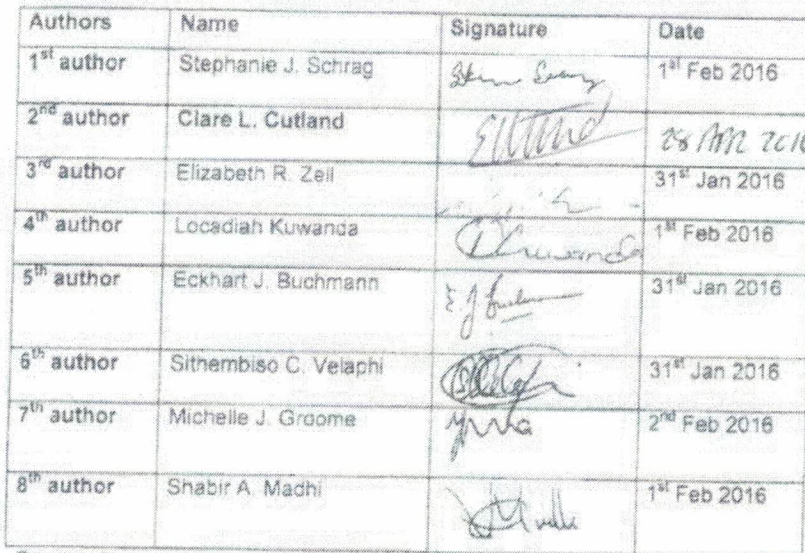 Authors Name Signature Date
1st author Stephanie J. Schrag 1st Feb 2016
2nd author Clare L. Cutland 28 APR 2016
3rd author Elizabeth R. Zell 31st Jan 2016
4th author Locadiah Kuwanda Kuwanda 1st Feb 2016
5th author Eckhart J. Buchmann 31st Jan 2016
6th author Sithembiso C. Velaphi 31st Jan 2016
7th author Michelle J. Groome 2nd Feb 2016
8th author Shabir A. Madhi 1st Feb 2016